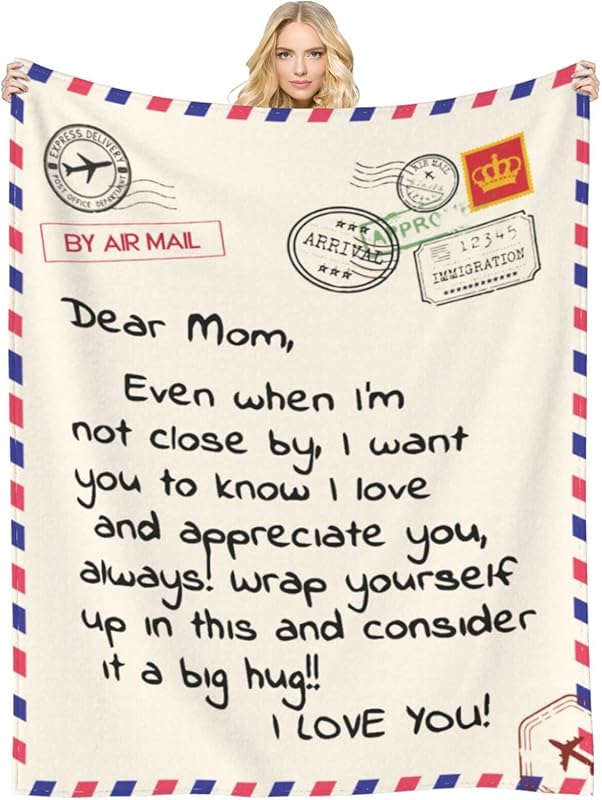 EXPRESS DELIVERY
POST OFFICE DEPARTMENT
AIR MAIL
BY AIR MAIL
ARRIVAL
12345
IMMIGRATION
Dear Mom,
Even when i'm
not close by, I want
you to know I love
and appreciate you,
always! wrap yourself
up in this and consider
it a big hug!!
I LOVE YOU!